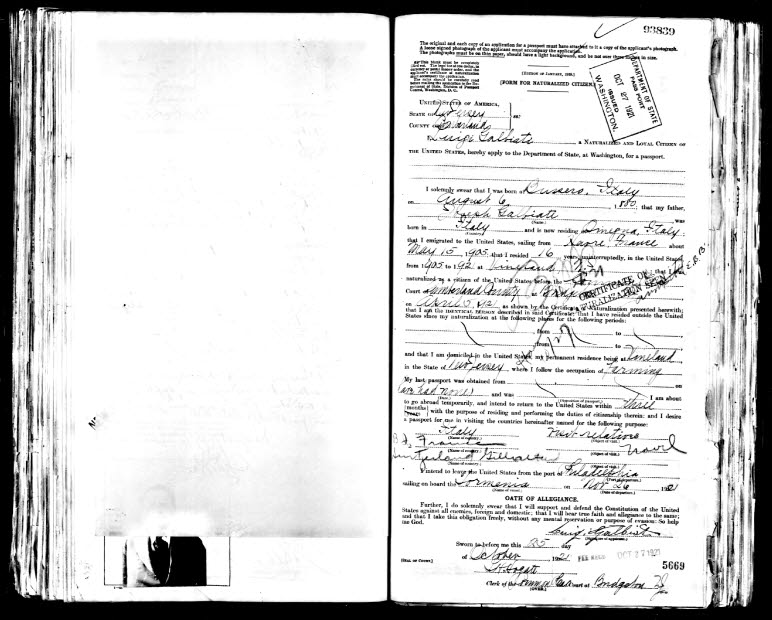 93839
The original and each copy of an application for a passport must have attached to it a copy of the applicant's photograph.
A loose signed photograph of the applicant must accompany the application.
The photographs must be on thin paper, should have a light background, and be not over three inches in size.
[FORM FOR NATURALIZED CITIZEN]
DEPARTMENT OF STATE
PASSPORT
OCT 27 1921
ISSUED
WASHINGTON
UNITED STATES OF AMERICA,
STATE OF New Jersey
COUNTY OF Cumberland
I, Luigi Galbiati, a NATURALIZED AND LOYAL CITIZEN OF
THE UNITED STATES, hereby apply to the Department of State, at Washington, for a passport.
I solemnly swear that I was born at Italy
on August 6, 1880 that my father,
Joseph Galbiate was
born in Italy and is now residing Omegna, Italy;
that I emigrated to the United States, sailing from Havre France about
May 15, 1905 that I resided 16 years, uninterruptedly, in the United States,
from 1905 to 1921 at Vineland N.J. that I
naturalized as a citizen of the United States before the
Court of Cumberland County at
on April as shown by the Certificate of Naturalization presented herewith;
that I am the IDENTICAL PERSON described in said Certificate; that I have resided outside the United
States since my naturalization at the following places for the following periods:
, from to
, from to
and that I am domiciled in the United States, my permanent residence being at Vineland
in the State of New Jersey, where I follow the occupation of Farming
My last passport was obtained from on
(have had none) and was I am about
to go abroad temporarily, and intend to return to the United States within three
months with the purpose of residing and performing the duties of citizenship therein; and I desire
a passport for use in visiting the countries hereinafter named for the following purpose:
Italy Visit relations
(Name of country.) (Object of visit.)
France Travel
(Name of country.) (Object of visit.)
Switzerland Gibraltar
(Name of country.) (Object of visit.)
I intend to leave the United States from the port of Philadelphia
(Port of departure.)
sailing on board the on Nov 26 1921
(Name of vessel.) (Date of departure.)
OATH OF ALLEGIANCE.
Further, I do solemnly swear that I will support and defend the Constitution of the United
States against all enemies, foreign and domestic; that I will bear true faith and allegiance to the same;
and that I take this obligation freely, without any mental reservation or purpose of evasion: So help
me God.
Luigi Galbiati
(Signature of applicant.)
Sworn to before me this 25 day
of October, 1921 OCT 27 1921
[SEAL OF COURT.]
5669
Clerk of the Common Pleas Court at Bridgeton NJ
(OVER.)